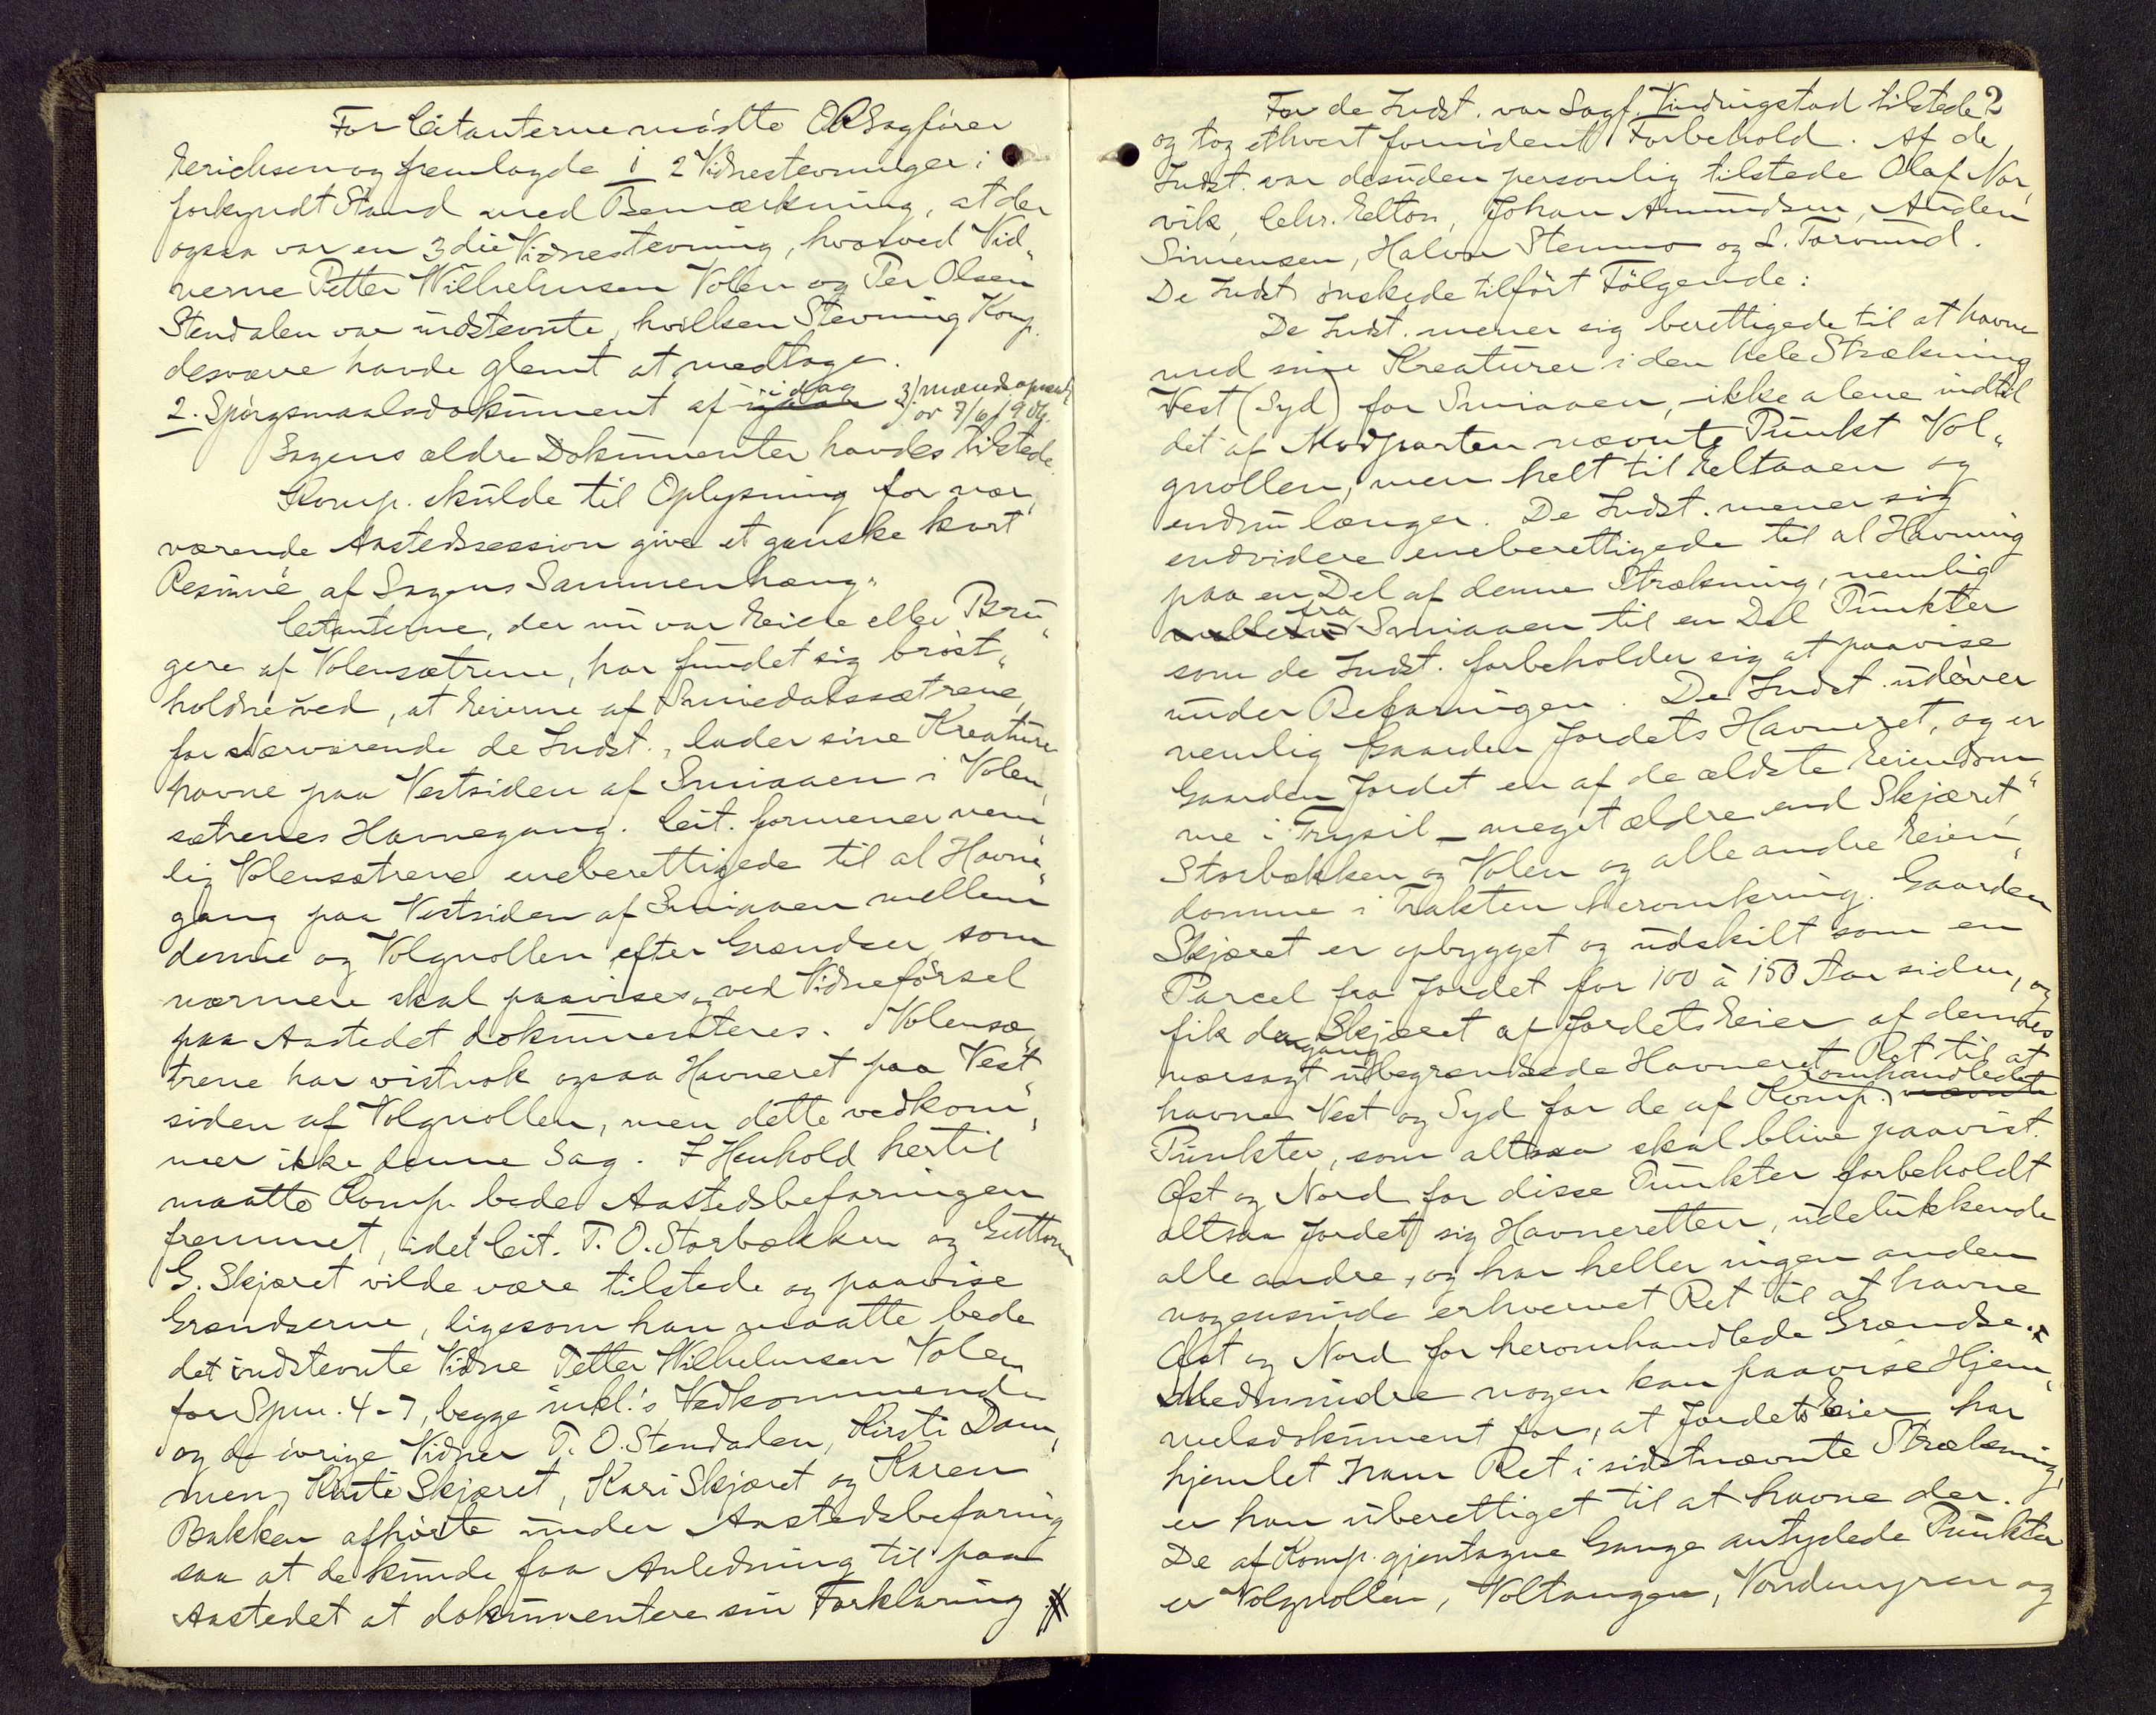 For Citanterne mødte ORSagfører
Erichsen og fremlagde 1 2 Vidnestevninger i
forkyndt Stand med Bemærkning, at der
ogsaa var en 3die Vidnestevning, hvorved Vid„
nerne Petter Wilhelmsen Volen og Per Olsen
Stendalen var indstevnte, hvilken Stevning Komp.
desværre havde glemt at medtage.
2. Spørgsmaalsdokument af idag 3). mandsopnævn.
ov 7/6 1909
Sagens ældre Dokumenter havdes tilstede.
Komp. skulde til Oplysning for nær„
værende Aastedssession give et ganske kort
Resumé af Sagens Sammenhæng.
Citanterne, der nu var Eiere eller Bru„
gere af Volensætrene, har fundet sig brøst„
holdne ved, at Eierne af Smiedalssætrene,
for Nærværende de Indst., lader sine Kreature
havne paa Vestsiden af Smiaaen i Volen„
sætrenes Havnegang. Cit. formener nem„
lig Volensætrene eneberettigede til al Havne„
gang paa Vestsiden af Smiaaen mellem
denne og Volgnollen efter Grændser som
nærmere skal paavises og ved Vidneførsel
paa Aastedet dokumenteres. Volensæ„
trene har vistnok ogsaa Havneret paa Vest„
siden af Volgnollen, men dette vedkom„
mer ikke denne Sag. I Henhold hertil
maatte Komp. bede Aastedsbefaringen
fremmet, idet Cit. T. O. Storbækken og Guttorm
G. Skjæret vilde være tilstede og paavise
Grændserne, ligesom han maatte bede
det indstevnte Vidne Petter Wilhelmsen Volen
for Spm. 4-7, begge inkl.s Vedkommende
og de øvrige Vidner P. O. Stendalen, Kirsti Dam„
men, Kirsti Skjæret, Kari Skjæret og Karen
Bakken afhørte under Aastedsbefaring
saa at de kunde faa Anledning til paa
Aastedet at dokumentere sin Forklaring #
For de Indst. var Sagf. Vindringstad tilstede 2
og tog ethvert fornødent Forbehold. Af de
Indst. var desuden personlig tilstede Olaf Nor„
vik, Chr. Elton, Johan Amundsen, Anden
Simensen, Halvor Stenmo og S. Tørvund.
De Indst. ønskede tilført Følgende:
De Indst. mener sig berettigede til at havne
med sine Kreaturer i den hele Strækning
Vest (Syd) for Smiaaen, ikke alene indtil
det af Modparten nævnte Punkt Vol„
gnollen, men helt til Eltaaen og
endnu længer. De Indst. mener sig
endvidere eneberettigede til al Havning
paa en Del af denne Strækning, nemlig
fra Smiaaen til en Del Punkter
som de Indst. forbeholder sig at paavise
under Befaringen. De Indst. udøver
nemlig Gaarden Jordets Havneret, og er
Gaarden Jordet en af de ældste Eiendom„
me i Trysil – meget ældre end Skjæret„
Storbækken og Volen og alle andre Eien„
domme i Trakten heromkring. Gaarden
Skjæret er opbygget og udskilt som en
Parcel fra Jordet for 100 à 150 Aar siden, og
fik dengang Skjæret af Jordets Eier af dennes
nærsagt ubegrændsede Havneret Ret til at
havne Vest og Syd for de af Komp. omhandlede
Punkter, som altsaa skal blive paavist.
Øst og Nord for disse Punkter forbeholdt
altsaa Jordet sig Havneretten, udelukkende
alle andre, og har heller ingen anden
nogensinde erhvervet Ret til at havne
Øst og Nord for heromhandlede Grændse.
Medmindre nogen kan paavise Hjem„
melsdokument for, at Jordets Eier har
hjemlet ham Ret i sidstnævnte Strækning,
er han uberettiget til at havne der.
De af Komp. gjentagne Gange antydede Punkter
er Volgnollen, Voltangen, Vondmyren og